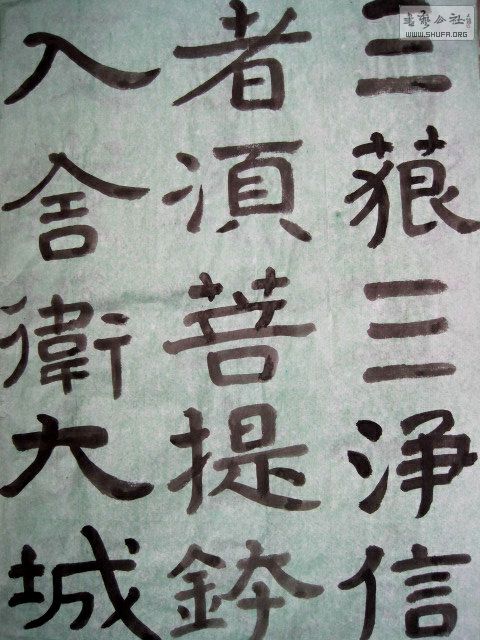 三藐三三净信
者湏菩提鉢
入舍衛大城
書藝公社
WWW.SHUFA.ORG